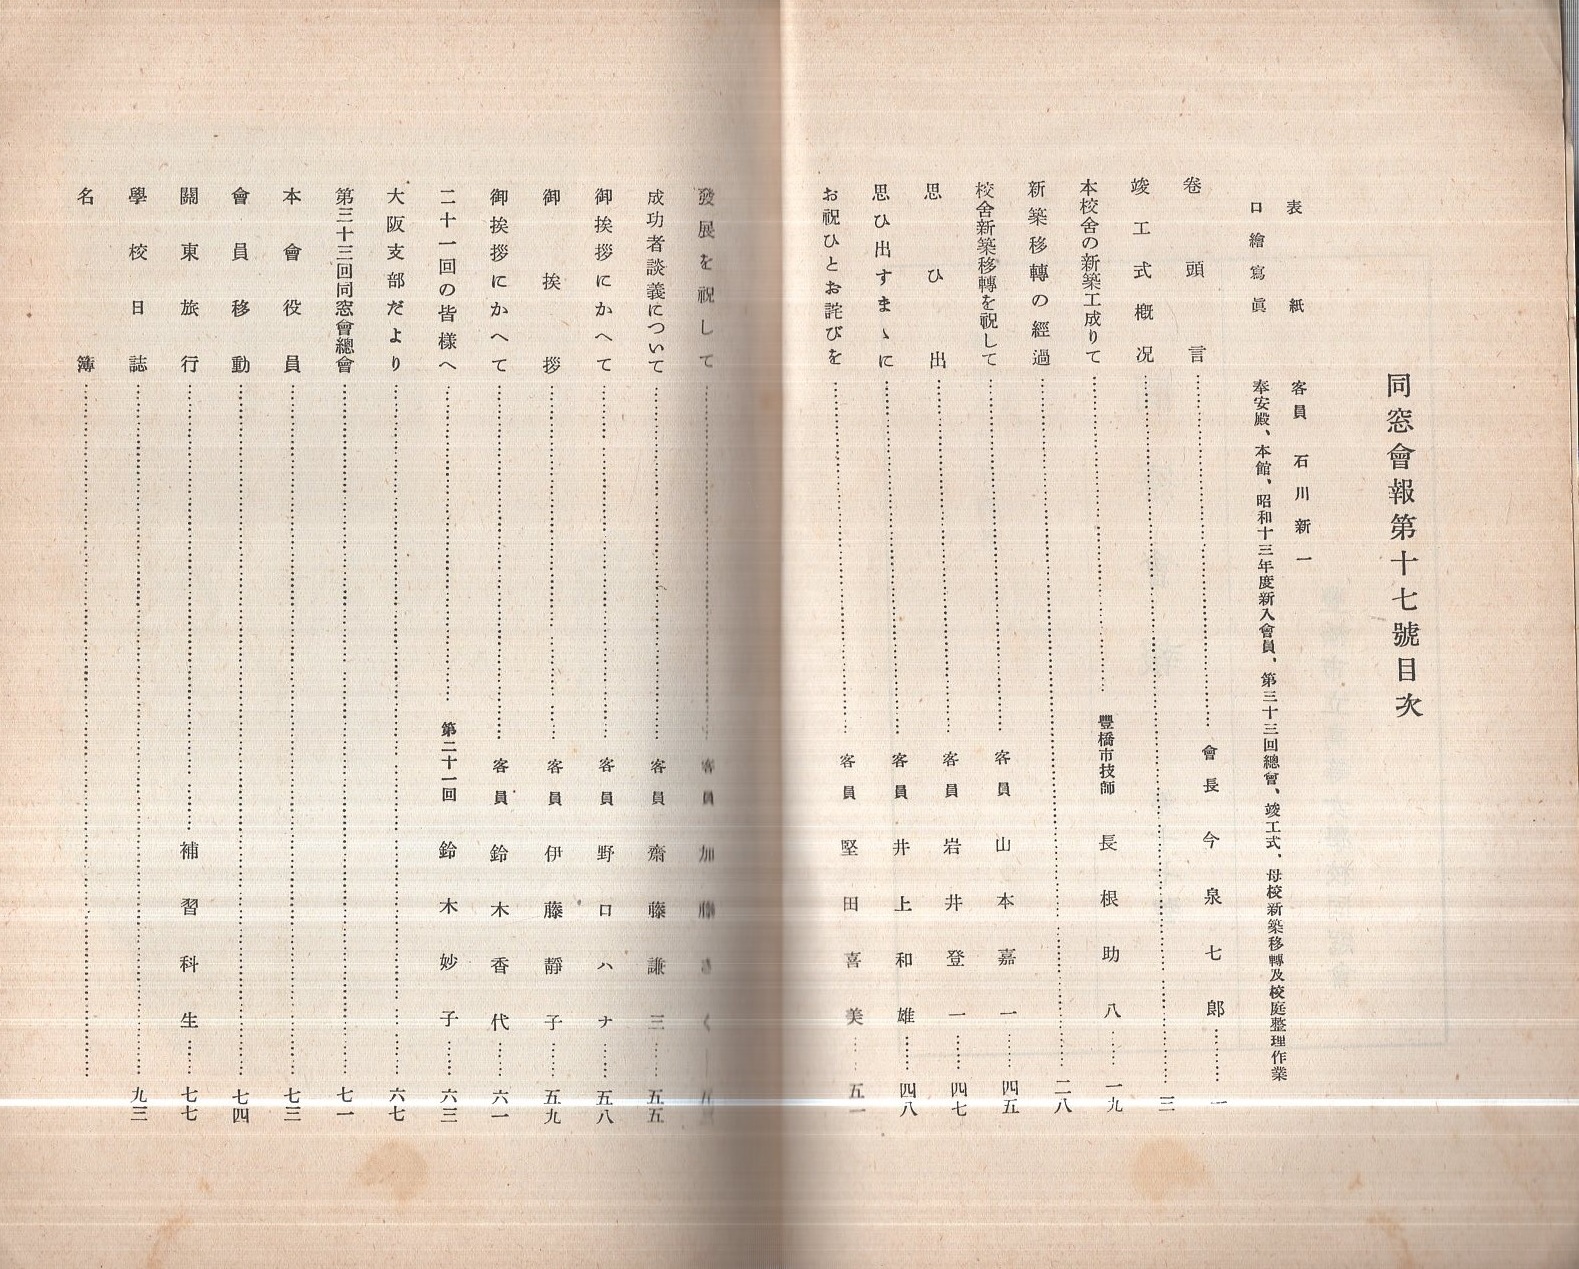 同窓會報第十七號目次
表紙 客員 石川新一
口繪寫眞 奉安殿、本館、昭和十三年度新入會員、第三十三回總會、竣工式、母校新築移轉及校庭整理作業
卷頭言……會長 今泉七郎……一
竣工式槪況……三
本校舍の新築工成りて……豐橋市技師 長根助八……一九
新築移轉の經過……二八
校舍新築移轉を祝して……客員 山本嘉一……四五
思ひ出……客員 岩井登一……四七
思ひ出すまゝに……客員 井上和雄……四八
お祝ひとお詫びを……客員 堅田喜美……五一
發展を祝して……客員 加藤きく
成功者談義について……客員 齋藤謙三……五五
御挨拶にかへて……客員 野口ハナ……五八
御挨拶……客員 伊藤靜子……五九
御挨拶にかへて……客員 鈴木香代……六一
二十一回の皆樣へ……第二十一回 鈴木妙子……六三
大阪支部だより……六七
第三十三回同窓會總會……七一
本會役員……七三
會員移動……七四
關東旅行……補習科生……七七
學校日誌……九三
名簿……